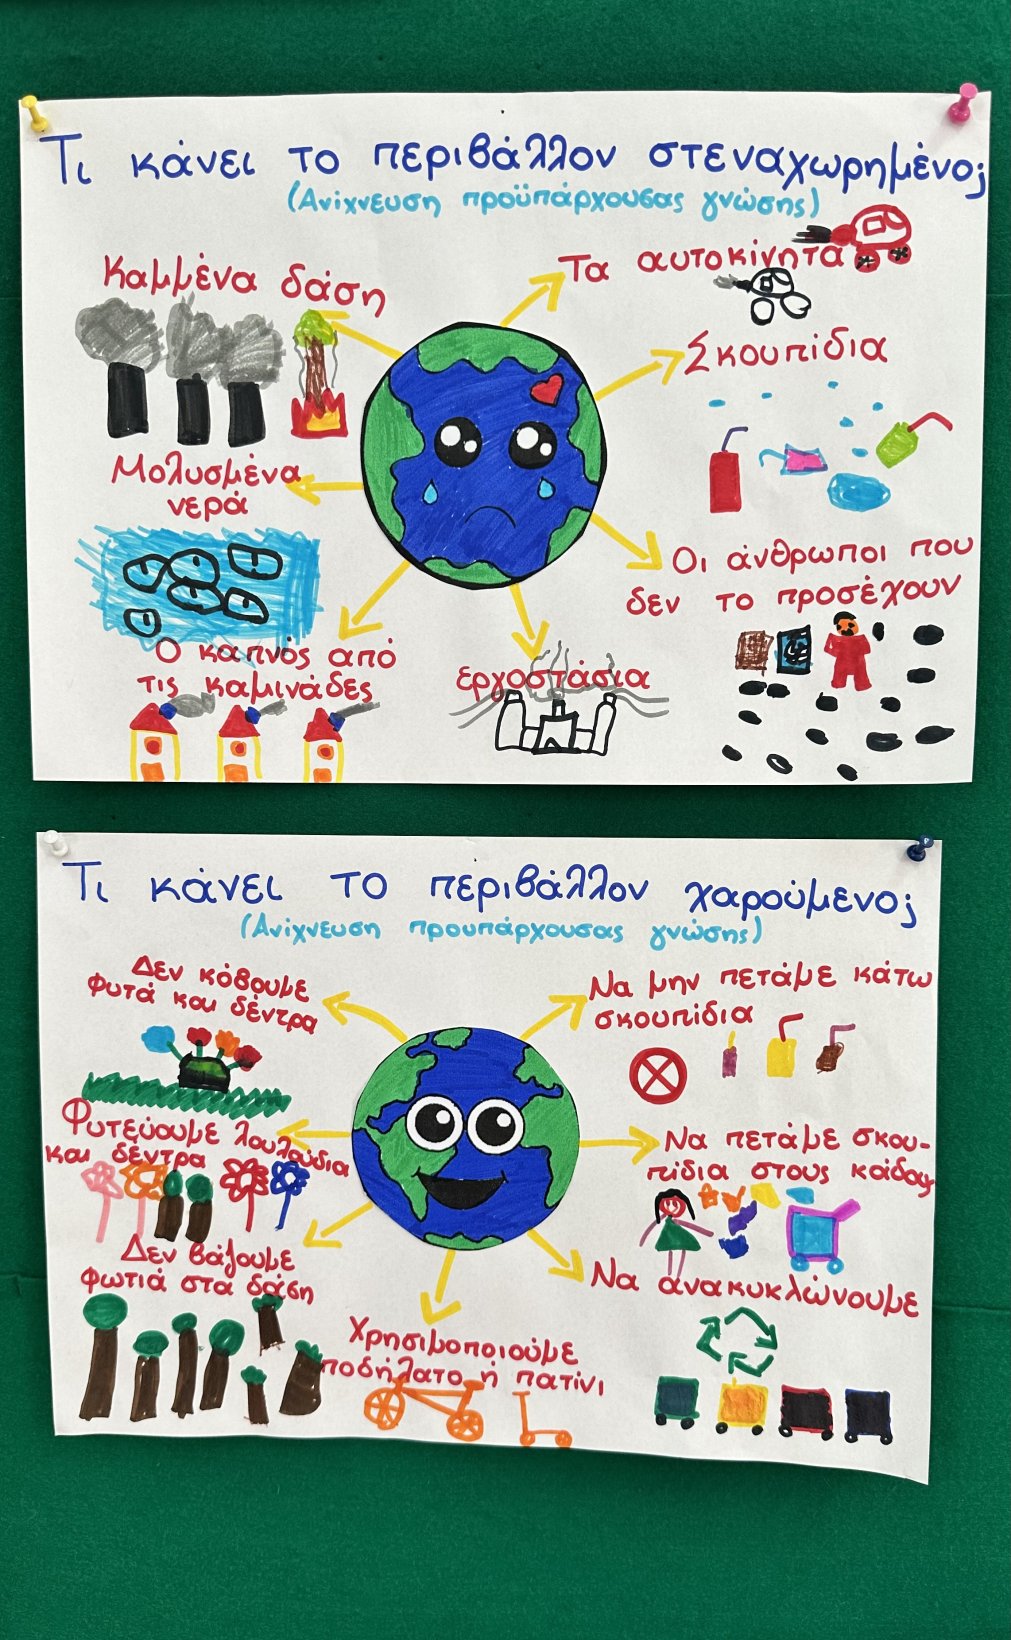 Τι κάνει το περιβάλλον στεναχωρημένο;
(Ανίχνευση προϋπάρχουσας γνώσης)
Καμμένα δάση
Τα αυτοκίνητα
Σκουπίδια
Μολυσμένα
νερά
Οι άνθρωποι που
δεν το προσέχουν
Ο καπνός από
τις καμινάδες
εργοστάσια
Τι κάνει το περιβάλλον χαρούμενο;
(Ανίχνευση προυπάρχουσας γνώσης)
Δεν κόβουμε
φυτά και δέντρα
Να μην πετάμε κάτω
σκουπίδια
Φυτεύουμε λουλούδια
και δέντρα
Να πετάμε σκου-
πίδια στους κάδους
Δεν βάζουμε
φωτιά στα δάση
Να ανακυκλώνουμε
Χρησιμοποιούμε
ποδήλατο ή πατίνι